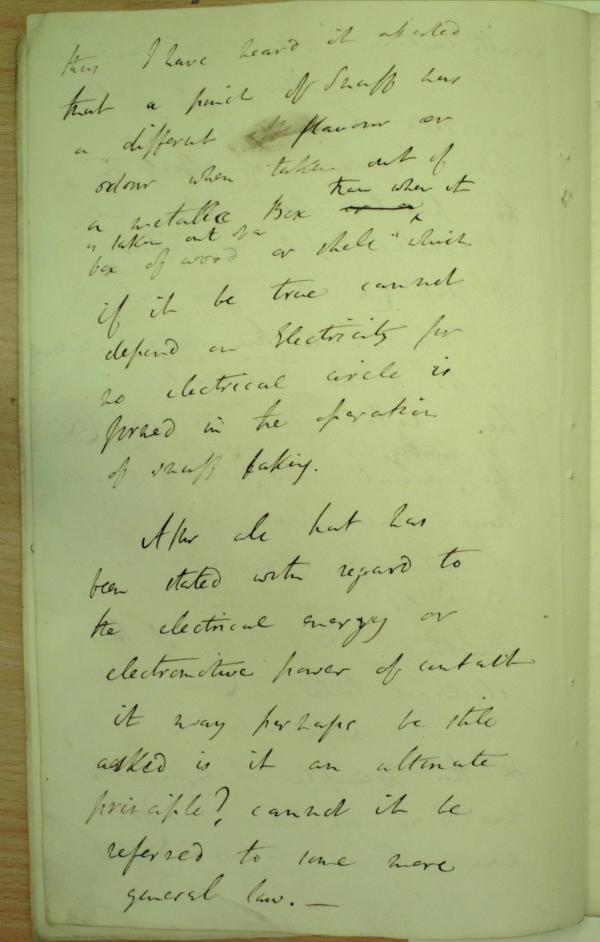 thus I have heard it asserted
that a pinch of Snuff has
a different flavour or
odour when taken out of
a metallic Box than when it
is taken out of a
box of wood or shell" which
if it be true cannot
depend on Electricity for
no electrical circle is
formed in the operation
of snuff taking.
After all that has
been stated with regard to
the electrical energy or
electromotive power of contact
it may perhaps be still
asked is it an ultimate
principle? cannot it be
referred to some more
general law. —